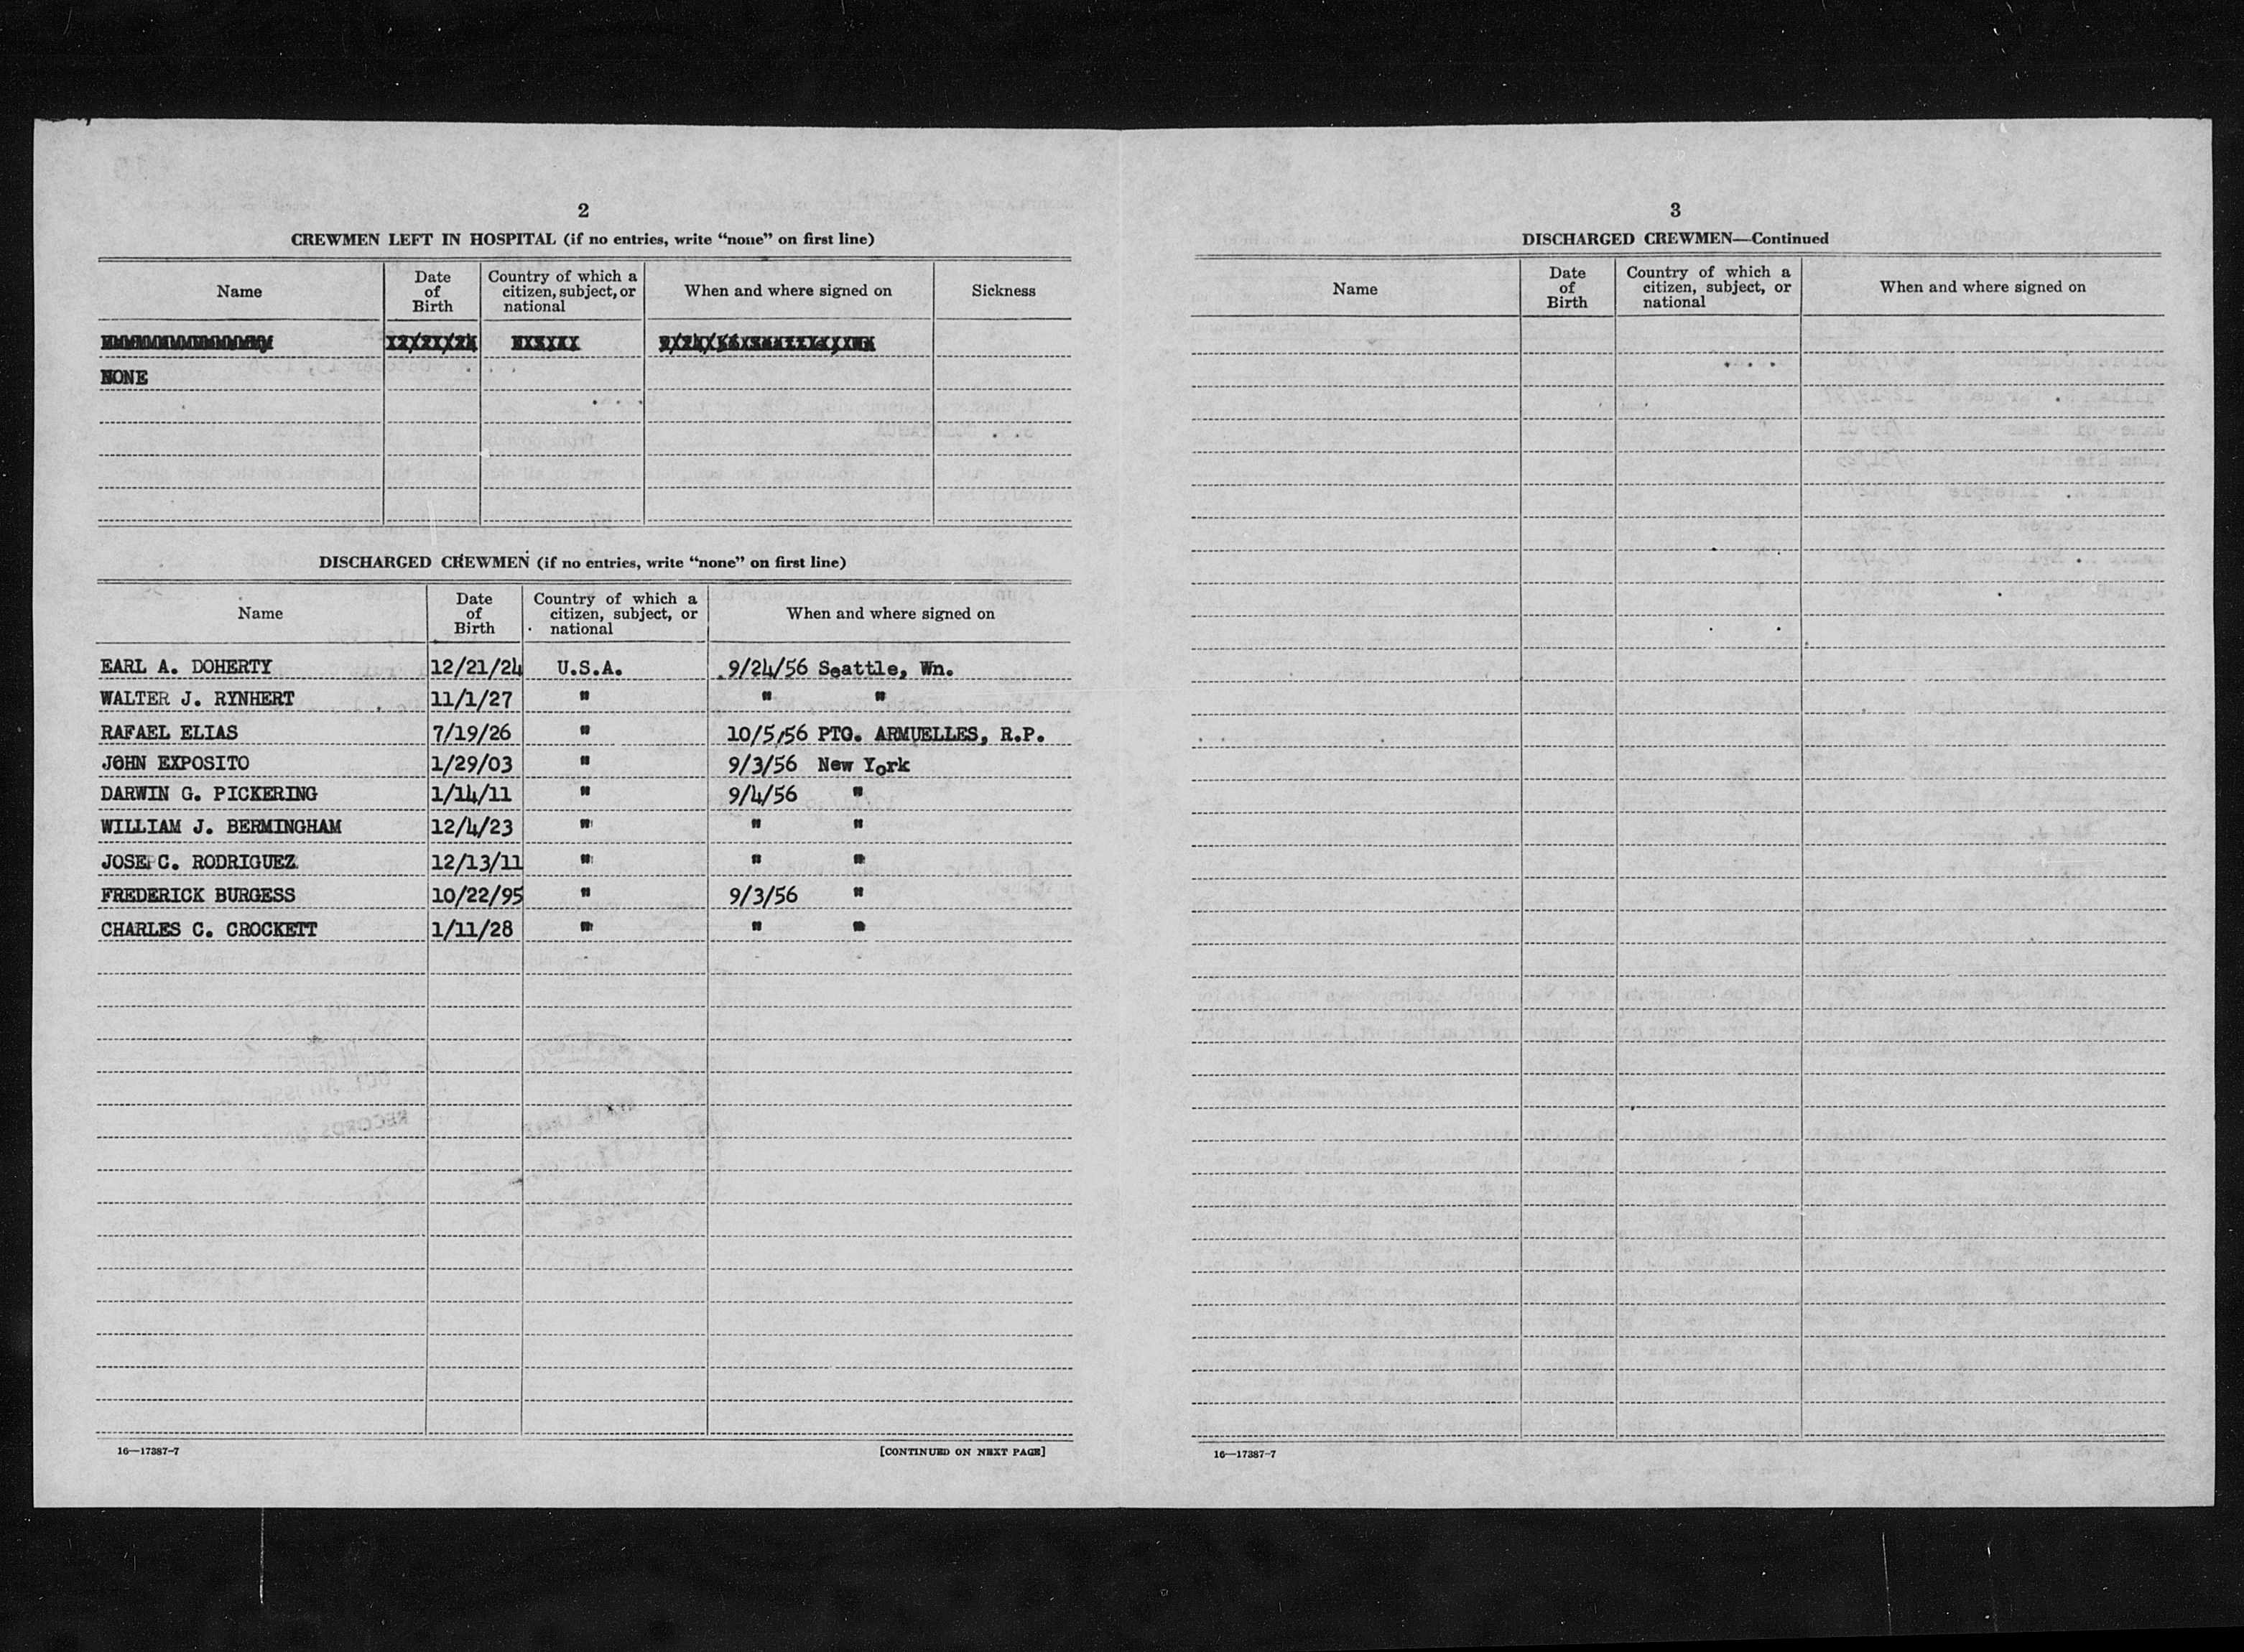 2
CREWMEN LEFT IN HOSPITAL (if no entries, write “none” on first line)
Name
Date of Birth
Country of which a citizen, subject, or national
When and where signed on
Sickness
NONE
DISCHARGED CREWMEN (if no entries, write “none” on first line)
Name
Date of Birth
Country of which a citizen, subject, or national
When and where signed on
EARL A. DOHERTY 12/21/24 U.S.A. 9/24/56 Seattle, Wn.
WALTER J. RYNHERT 11/1/27 " " "
RAFAEL ELIAS 7/19/26 " 10/5/56 PTO. ARMUELLES, R.P.
JOHN EXPOSITO 1/29/03 " 9/3/56 New York
DARWIN G. PICKERING 1/14/11 " 9/4/56 "
WILLIAM J. BERMINGHAM 12/4/23 " " "
JOSE C. RODRIGUEZ 12/13/11 " " "
FREDERICK BURGESS 10/22/95 " 9/3/56 "
CHARLES C. CROCKETT 1/11/28 " " "
16—17387-7
[CONTINUED ON NEXT PAGE]
3
DISCHARGED CREWMEN—Continued
Name
Date of Birth
Country of which a citizen, subject, or national
When and where signed on
16—17387-7